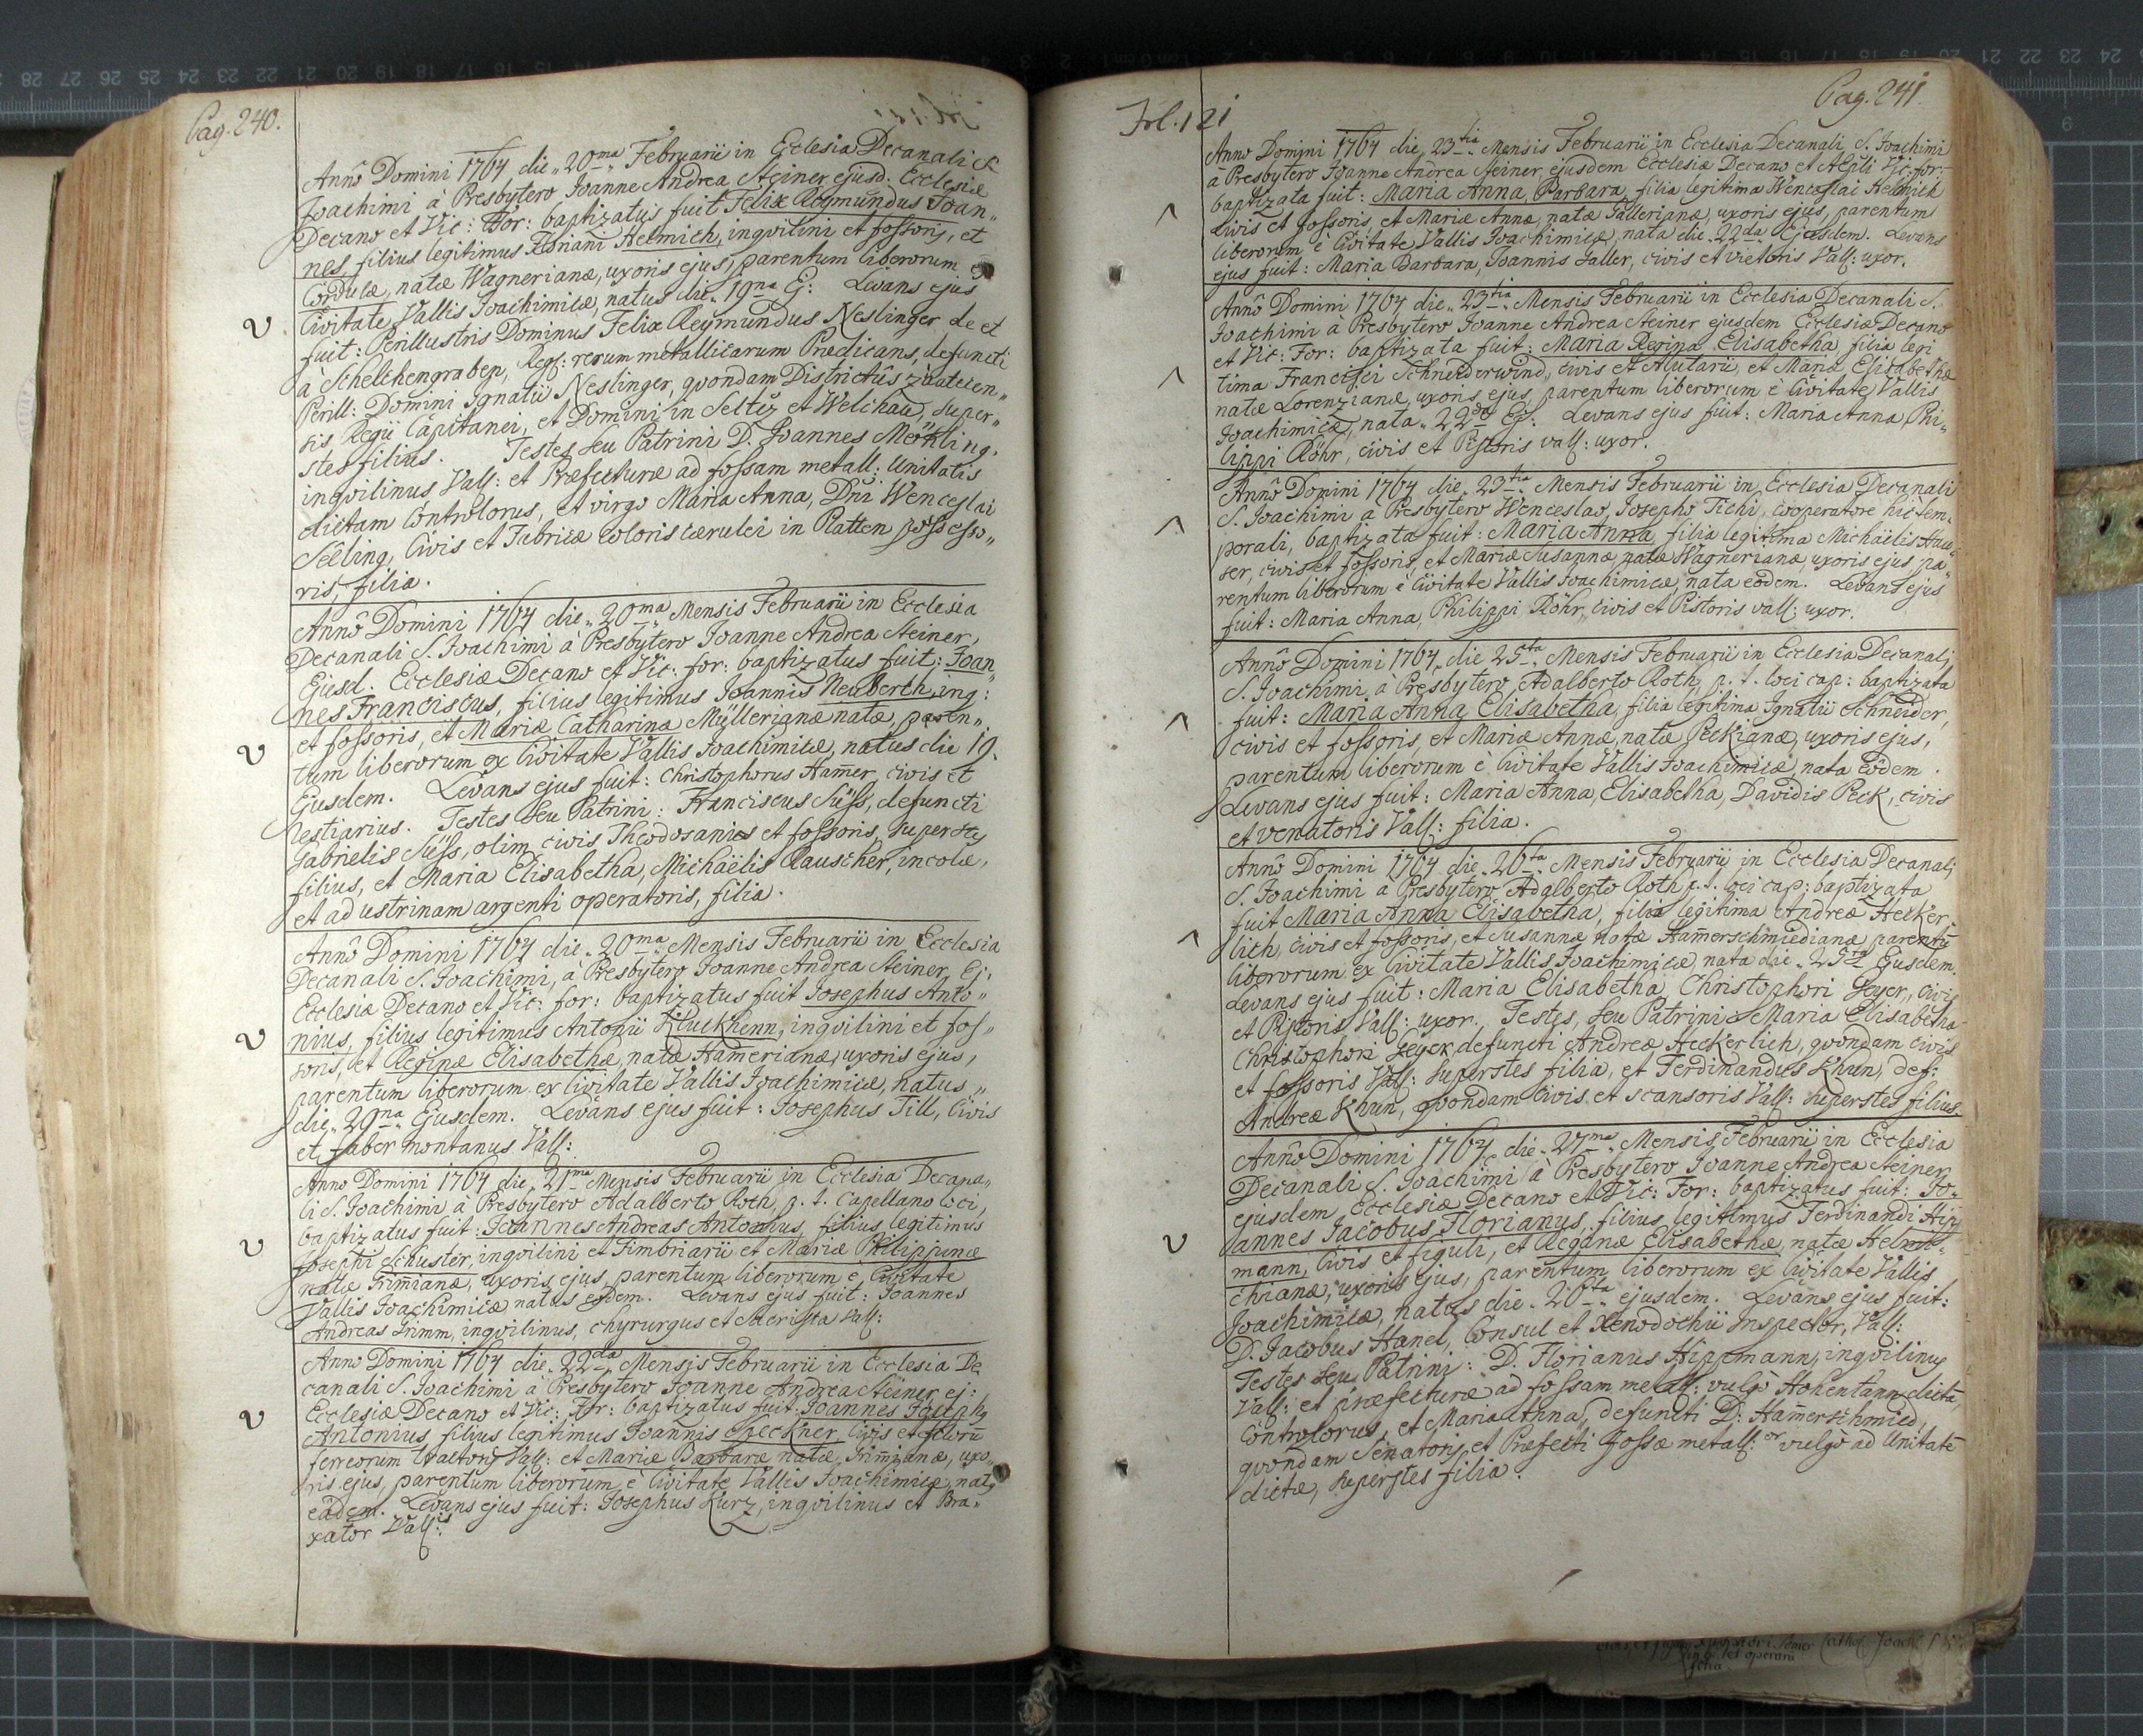 Pag. 240.
Anno Domini 1764 die 20ma Februarii in Ecclesia Decanali S.
Joachimi à Presbytero Joanne Andrea Steiner ejusd: Ecclesiæ
Decano et Vic: For: baptizatus fuit Felix Reymundus Joan„
nes, filius legitimus Floriani Helmich, inqvilini et fossoris, et
Cordulæ, natæ Wagnerianæ, uxoris ejus, parentum liberorum è
Civitate Vallis Joachimicæ, natus die 19na Ej: Levans ejus
fuit: Perillustris Dominus Felix Reymundus Neslinger de et
à Schelchengraben, Reg: rerum metallicarum Prædicans, defuncti
Perill: Domini Ignatii Neslinger, qvondam Districtûs Zauteien„
sis Regii Capitanei, et Domini in Seltiz et Welchau, super„
stes filius. Testes seu Patrini D. Joannes Mörling,
inqvilinus Vall: et Præfecturæ ad fossam metall: Unitatis
dictam Controlorus, et virgo Maria Anna, Dni Wenceslai
Selling, Civis et Fabricæ coloris cærulei in Platten possesso„
ris, filia.
Anno Domini 1764 die 20ma Mensis Februarii in Ecclesia
Decanali S. Joachimi à Presbytero Joanne Andrea Steiner,
Ejusd. Ecclesiæ Decano et Vic: for: baptizatus fuit: Joan„
nes Franciscus, filius legitimus Joannis Neuberth, inq:
et fossoris, et Mariæ Catharinæ Müllerianæ natæ, paren„
tum liberorum ex Civitate Vallis Joachimicæ, natus die 19.
Ejusdem. Levans ejus fuit: Christophorus Hamer, civis et
restiarius. Testes seu Patrini: Franciscus Süss, defuncti
Gabrielis Süss, olim civis Theodosanies et fossoris, superstes
filius, et Maria Elisabetha, Michaëlis Rauscher, incolæ,
et ad ustrinam argenti operatoris, filia.
Anno Domini 1764 die 20ma Mensis Februarii in Ecclesia
Decanali S. Joachimi, à Presbytero Joanne Andrea Steiner, Ej.
Ecclesiæ Decano et Vic: for: baptizatus fuit Josephus Anto„
nius, filius legitimus Antonii Kluckhenn, inqvilini et fos„
soris, et Reginæ Elisabethæ, natæ Hamerianæ, uxoris ejus,
parentum liberorum ex Civitate Vallis Joachimicæ, natus
die 29na Ejusdem. Levans ejus fuit: Josephus Till, Civis
et faber montanus Vall:
Anno Domini 1764 die 21ma Mensis Februarii in Ecclesia Decana„
li S. Joachimi à Presbytero Adalberto Roth, p. t. Capellano loci,
baptizatus fuit: Joannes Andreas Antonius, filius legitimus
Josephi Schuster, inqvilini et Fimbriarii et Mariæ Philippinæ
natæ Grimianæ, uxoris ejus, parentum liberorum è Civitate
Vallis Joachimicæ natus eodem. Levans ejus fuit: Joannes
Andreas Grimm, inqvilinus, chyrurgus et Vall:
Anno Domini 1764 die 22da Mensis Februarii in Ecclesia De
canali S. Joachimi à Presbytero Joanne Andrea Steiner ej:
Ecclesiæ Decano et Vic: For: baptizatus fuit: Joannes Joseph9
Antonius, filius legitimus Joannis Speckner, Civis et
ferreorum Vall: et Mariæ Barbaræ natæ Grimianæ, uxo„
ris ejus, parentum liberorum è Civitate Vallis Joachimicæ, nat9
eâdem. Levans ejus fuit: Josephus Kurz, inqvilinus et Bra„
xator Vallis:
Fol. 121
Pag. 241.
Anno Domini 1764 die 23tia Mensis Februarii in Ecclesia Decanali S. Joachimi
à Presbytero Joanne Andrea Steiner ejusdem Ecclesiæ Decano et Vic: for:
baptizata fuit: Maria Anna Barbara, filia legitima Wenceslai Helmich
Civis et fossoris, et Mariæ Annæ, natæ Sallerianæ, uxoris ejus, parentum
liberorum è Civitate Vallis Joachimicæ, nata die 22da Ejusdem. Levans
ejus fuit: Maria Barbara, Joannis Saller, civis et vietoris Vall: uxor.
Anno Domini 1764 die 23tia Mensis Februarii in Ecclesia Decanali S.
Joachimi à Presbytero Joanne Andrea Steiner ejusdem Ecclesiæ Decano
et Vic: For: baptizata fuit: Maria Regina Elisabetha filia legi
tima Francisci Schneiderwind, civis et Alutarii, et Mariæ Elisabethæ
natæ Lorenzianæ, uxoris ejus, parentum liberorum è Civitate Vallis
Joachimicæ, nata 22da Ej: Levans ejus fuit: Maria Anna Phi„
lippi Röhr, civis et Pistoris vall: uxor.
Anno Domini 1764 die 23tia Mensis Februarii in Ecclesia Decanali
S. Joachimi à Presbytero Wenceslao, Josepho Tichi, Cooperatore hic tem„
porali, baptizata fuit: Maria Anna, filia legitima Michaëlis Hau„
ser, civis et fossoris, et Mariæ Susannæ natæ Wagnerianæ, uxoris ejus pa„
rentum liberorum è Civitate Vallis Joachimicæ, nata eodem. Levans ejus
fuit: Maria Anna, Philippi Röhr, civis et Pistoris vall: uxor.
Anno Domini 1764 die 25ta Mensis Februarii in Ecclesia Decanali
S. Joachimi à Presbytero Adalberto Roth, p. t. loci cap: baptizata
fuit: Maria Anna Elisabetha, filia legitima Ignatii Schneider,
civis et fossoris, et Mariæ Annæ, natæ Peckianæ, uxoris ejus,
parentum liberorum è Civitate Vallis Joachimicæ nata eôdem.
Levans ejus fuit: Maria Anna, Elisabetha, Davidis Peck, civis
et venatoris Vall: filia.
Anno Domini 1764 die 26ta Mensis Februarii in Ecclesia Decanali
S. Joachimi à Presbytero Adalberto Roth p. t. loci cap: baptizata
fuit Maria Anna Elisabetha, filia legitima Andreæ Hecker„
lich, civis et fossoris, et Susannæ natæ Hamerschmiedianæ, parentu
liberorum ex Civitate Vallis Joachimicæ, nata die 25ta Ejusdem.
Levans ejus fuit: Maria Elisabetha, Christophori Geyer, civis
et Pistoris Vall: uxor. Testes, seu Patrini Maria Elisabetha
Christophori Geyer, defuncti Andreæ Heckerlich, qvondam civis
et fossoris Vall: superstes filia, et Ferdinandus Khun, def:
Andreæ Khun, qvondam civis et scansoris Vall: superstes filius.
Anno Domini 1764 die 27ma Mensis Februarii in Ecclesia
Decanali S. Joachimi à Presbytero Joanne Andrea Steiner
ejusdem Ecclesiæ Decano et Vic: For: baptizatus fuit: Jo„
annes Jacobus Florianus, filius legitimus Ferdinandi Hip„
mann, Civis et figuli, et Reginæ Elisabethæ, natæ Helmi„
chianæ, uxoris ejus, parentum liberorum ex Civitate Vallis
Joachimicæ, natus die 26ta ejusdem. Levans ejus fuit:
D. Jacobus Hanel, Consul et Xenodochii Inspector, Vall:
Testes seu Patrini: D. Florianus Hippmann, inqvilinus
Vall: et præfecturæ ad fossam metall: vulgò Hohentann dictâ,
Controlorus, et Maria Anna, defuncti D. Hamerschmied,
qvondam Senatoris, et Præfecti Fossæ metall: vulgò ad Unitatê
dictæ, superstes filia.